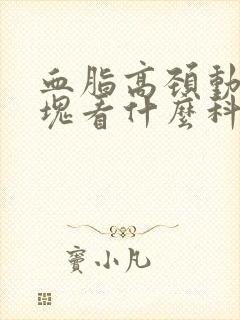 血脂高颈動
塊看什麼科
寶小凡